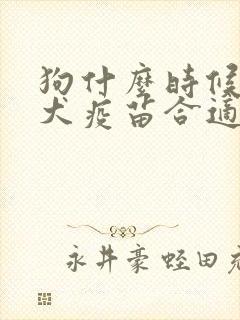 狗什麼時候
犬疫苗合適
永井豪蛭田充